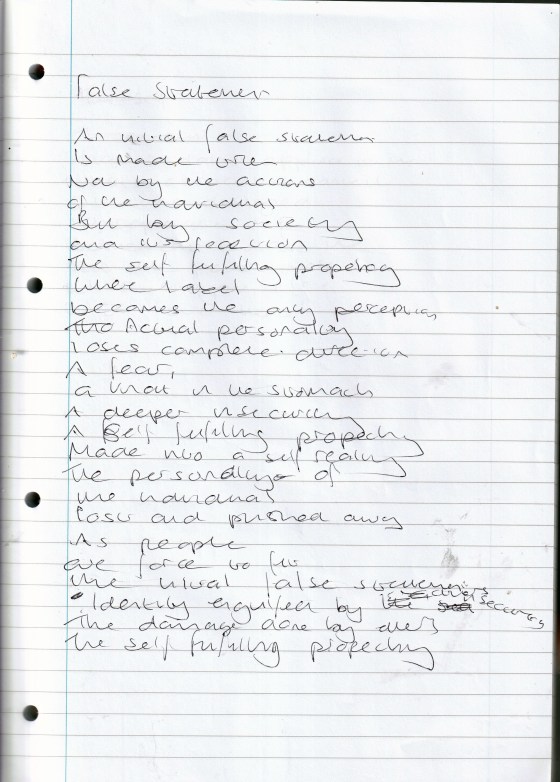 False Statement
An initial false statement
Is made
Not by the actions
of the individual
But by society
and its
The self fulfilling propechy
where Label
becomes the only perception
the Actual personality
loses complete direction
A fear,
a knot in the stomach
A deeper insecurity
A self fulfilling propechy
Made into a self reality
The personality of
the individual
Lost and pushed away
As people
are force to fit
the initial false statements
Identity engulfed by
The damage done by others
The self fulfilling propechy